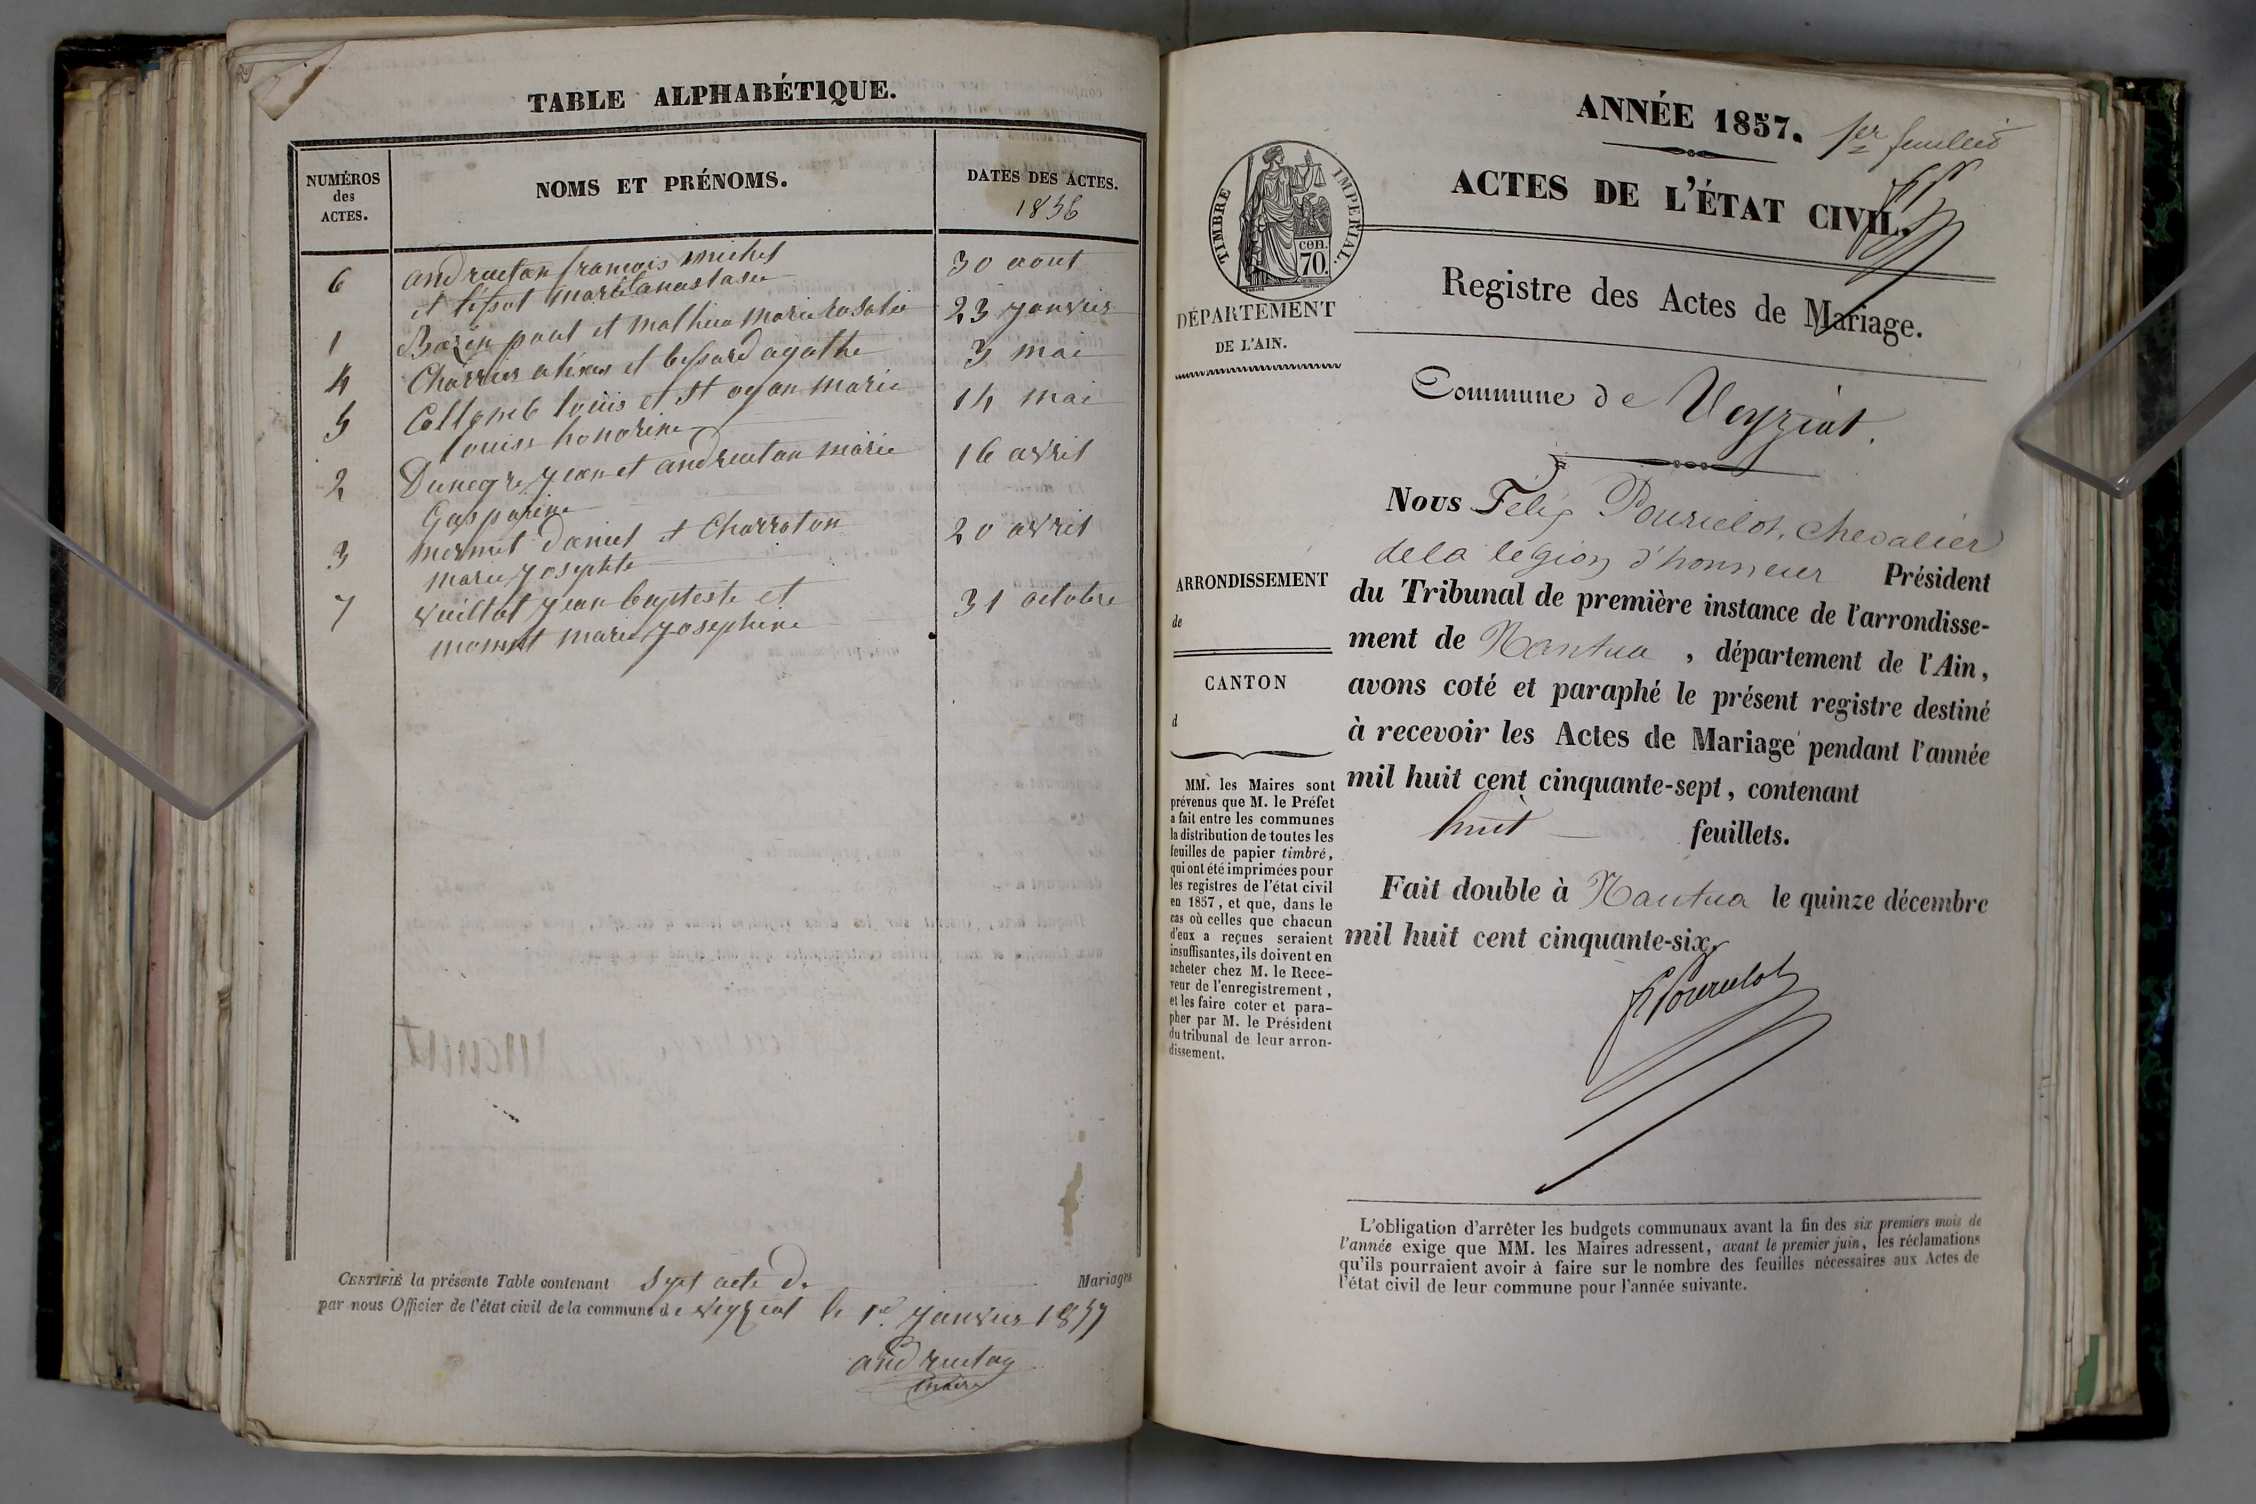 TABLE ALPHABÉTIQUE.
NUMÉROS
des
ACTES.
NOMS ET PRÉNOMS.
DATES DES ACTES.
1856
6 andruetan françois michel 30 aout
et lessot marie anastasie
1 Bozon paul et mathieu marie rosalie 23 janvier
4 Charrier aléxis et bessard agathe 3 mai
5 Collomb louis et st oyan marie 14 mai
louise honorine
2 Dunegre jean et andruetan marie 16 avril
Gasparine
3 mermet daniel et Charraton 20 avril
marie josephte
7 vuillat jean baptiste et 31 octobre
marie josephine
CERTIFIÉ la présente Table contenant sept acte de Mariages
par nous Officier de l'état civil de la commune de veyziat le 1er janvier 1857
andruetan
maire
ANNÉE 1857.
1er feuillet
ACTES DE L'ÉTAT CIVIL.
TIMBRE IMPERIAL.
cen.
70.
Registre des Actes de Mariage.
DÉPARTEMENT
DE L'AIN.
Commune de Veyziat.
Nous Félix Pourcelot, chevalier
de la légion d'honneur Président
du Tribunal de première instance de l'arrondisse-
ment de Nantua, département de l'Ain,
avons coté et paraphé le présent registre destiné
à recevoir les Actes de Mariage pendant l'année
mil huit cent cinquante-sept, contenant
huit feuillets.
Fait double à Nantua le quinze décembre
mil huit cent cinquante-six.
F Pourcelot
ARRONDISSEMENT
de
CANTON
d
MM. les Maires sont
prévenus que M. le Préfet
a fait entre les communes
la distribution de toutes les
feuilles de papier timbré,
qui ont été imprimées pour
les registres de l'état civil
en 1857, et que, dans le
cas où celles que chacun
d'eux a reçues seraient
insuffisantes, ils doivent en
acheter chez M. le Rece-
veur de l'enregistrement,
et les faire coter et para-
pher par M. le Président
du tribunal de leur arron-
dissement.
L'obligation d'arrêter les budgets communaux avant la fin des six premiers mois de
l'année exige que MM. les Maires adressent, avant le premier juin, les réclamations
qu'ils pourraient avoir à faire sur le nombre des feuilles nécessaires aux Actes de
l'état civil de leur commune pour l'année suivante.